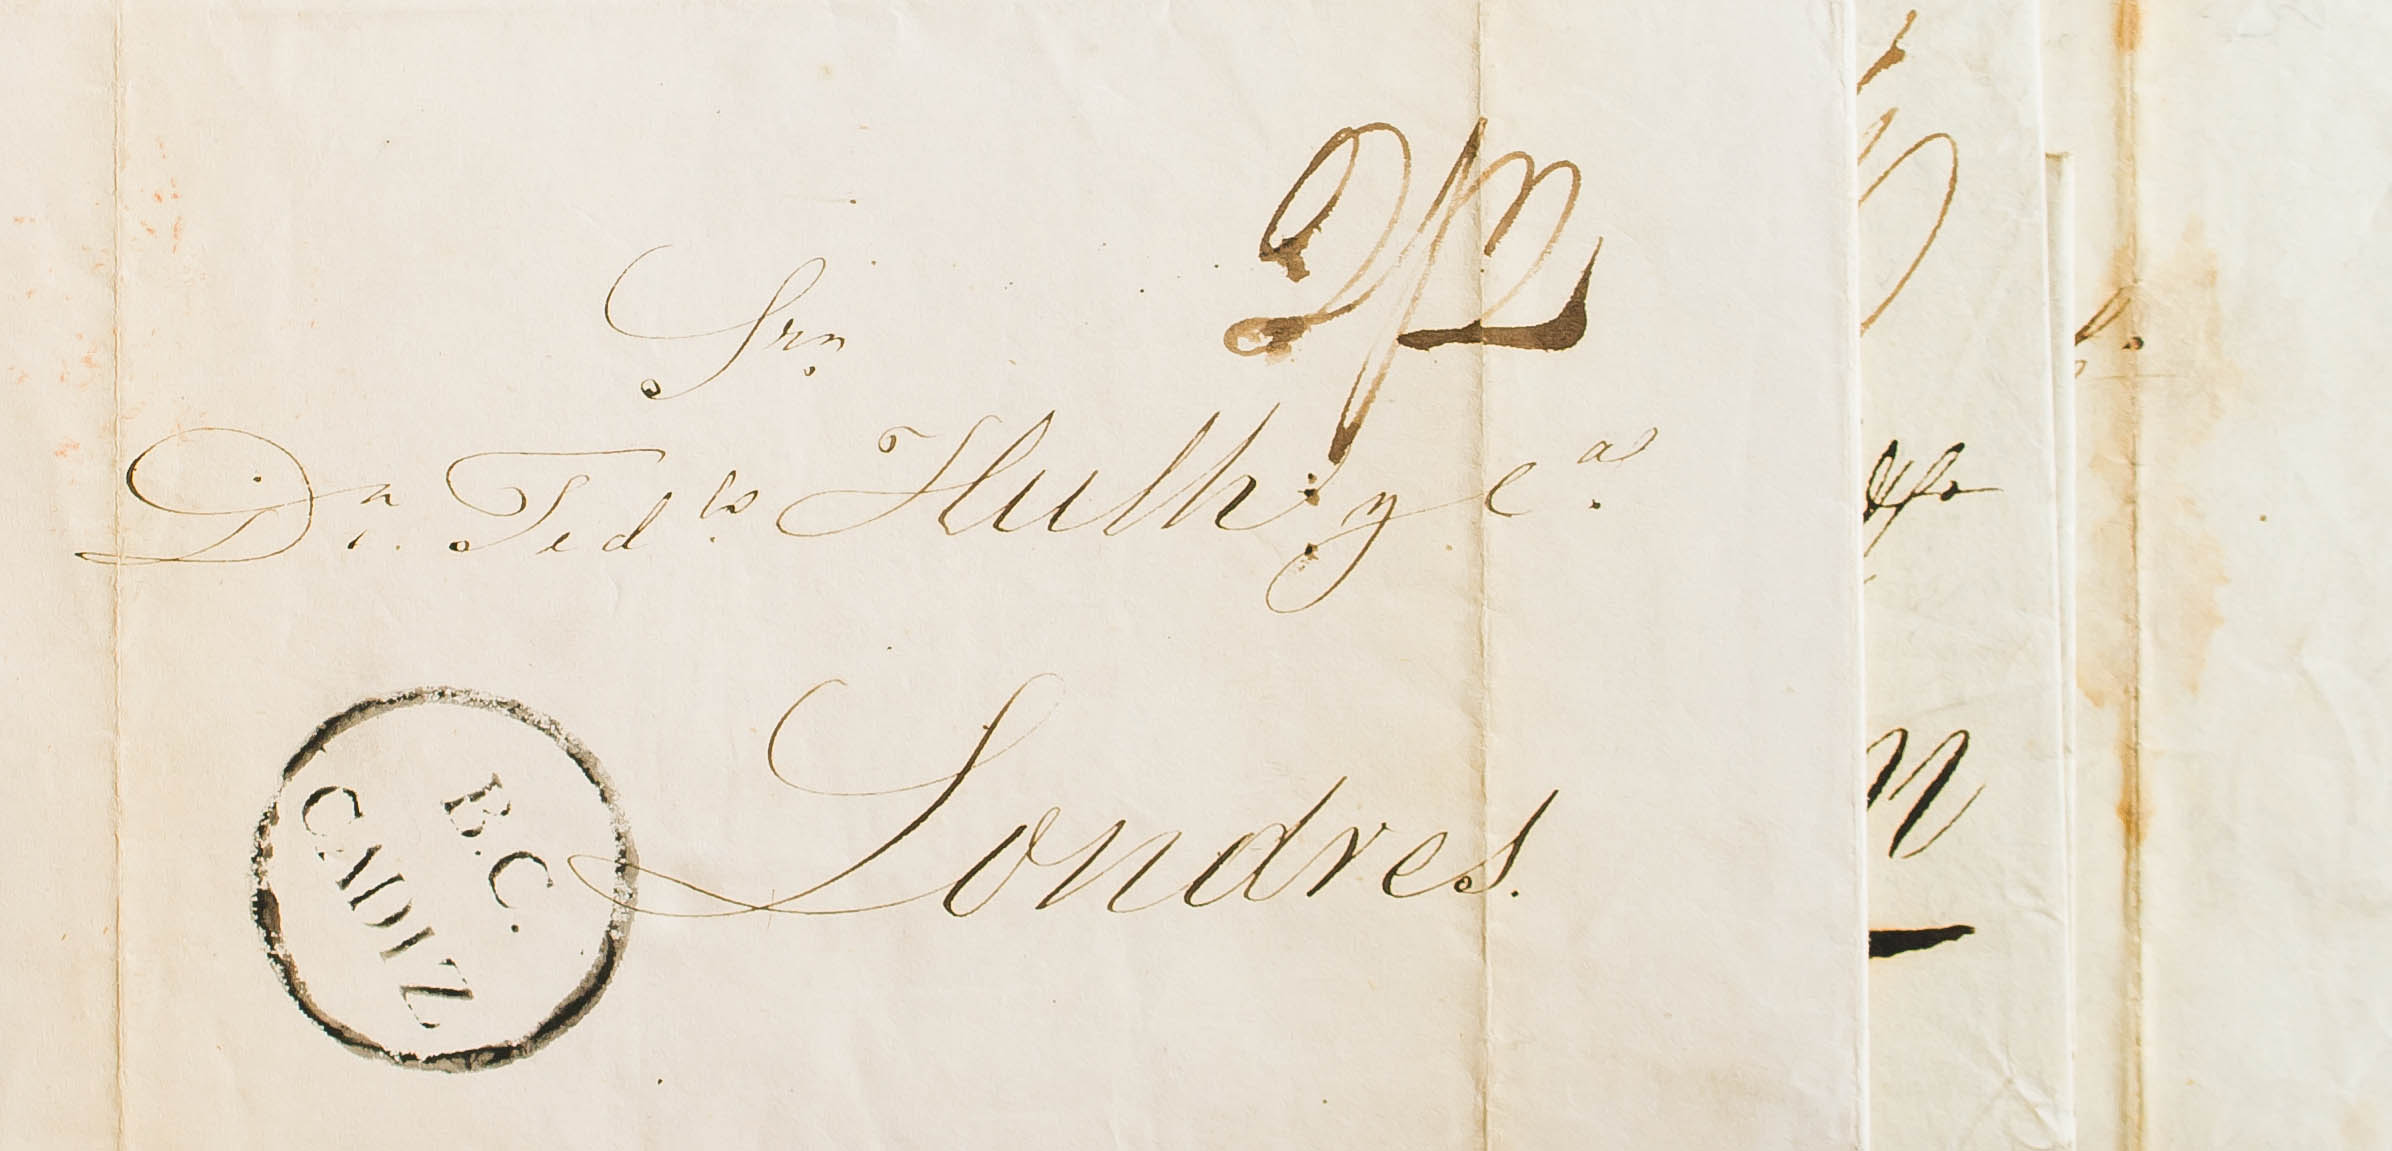 2/2
Srn.
Dn. Fedco. Huth y Ca.
Londres.
B.C.
CADIZ